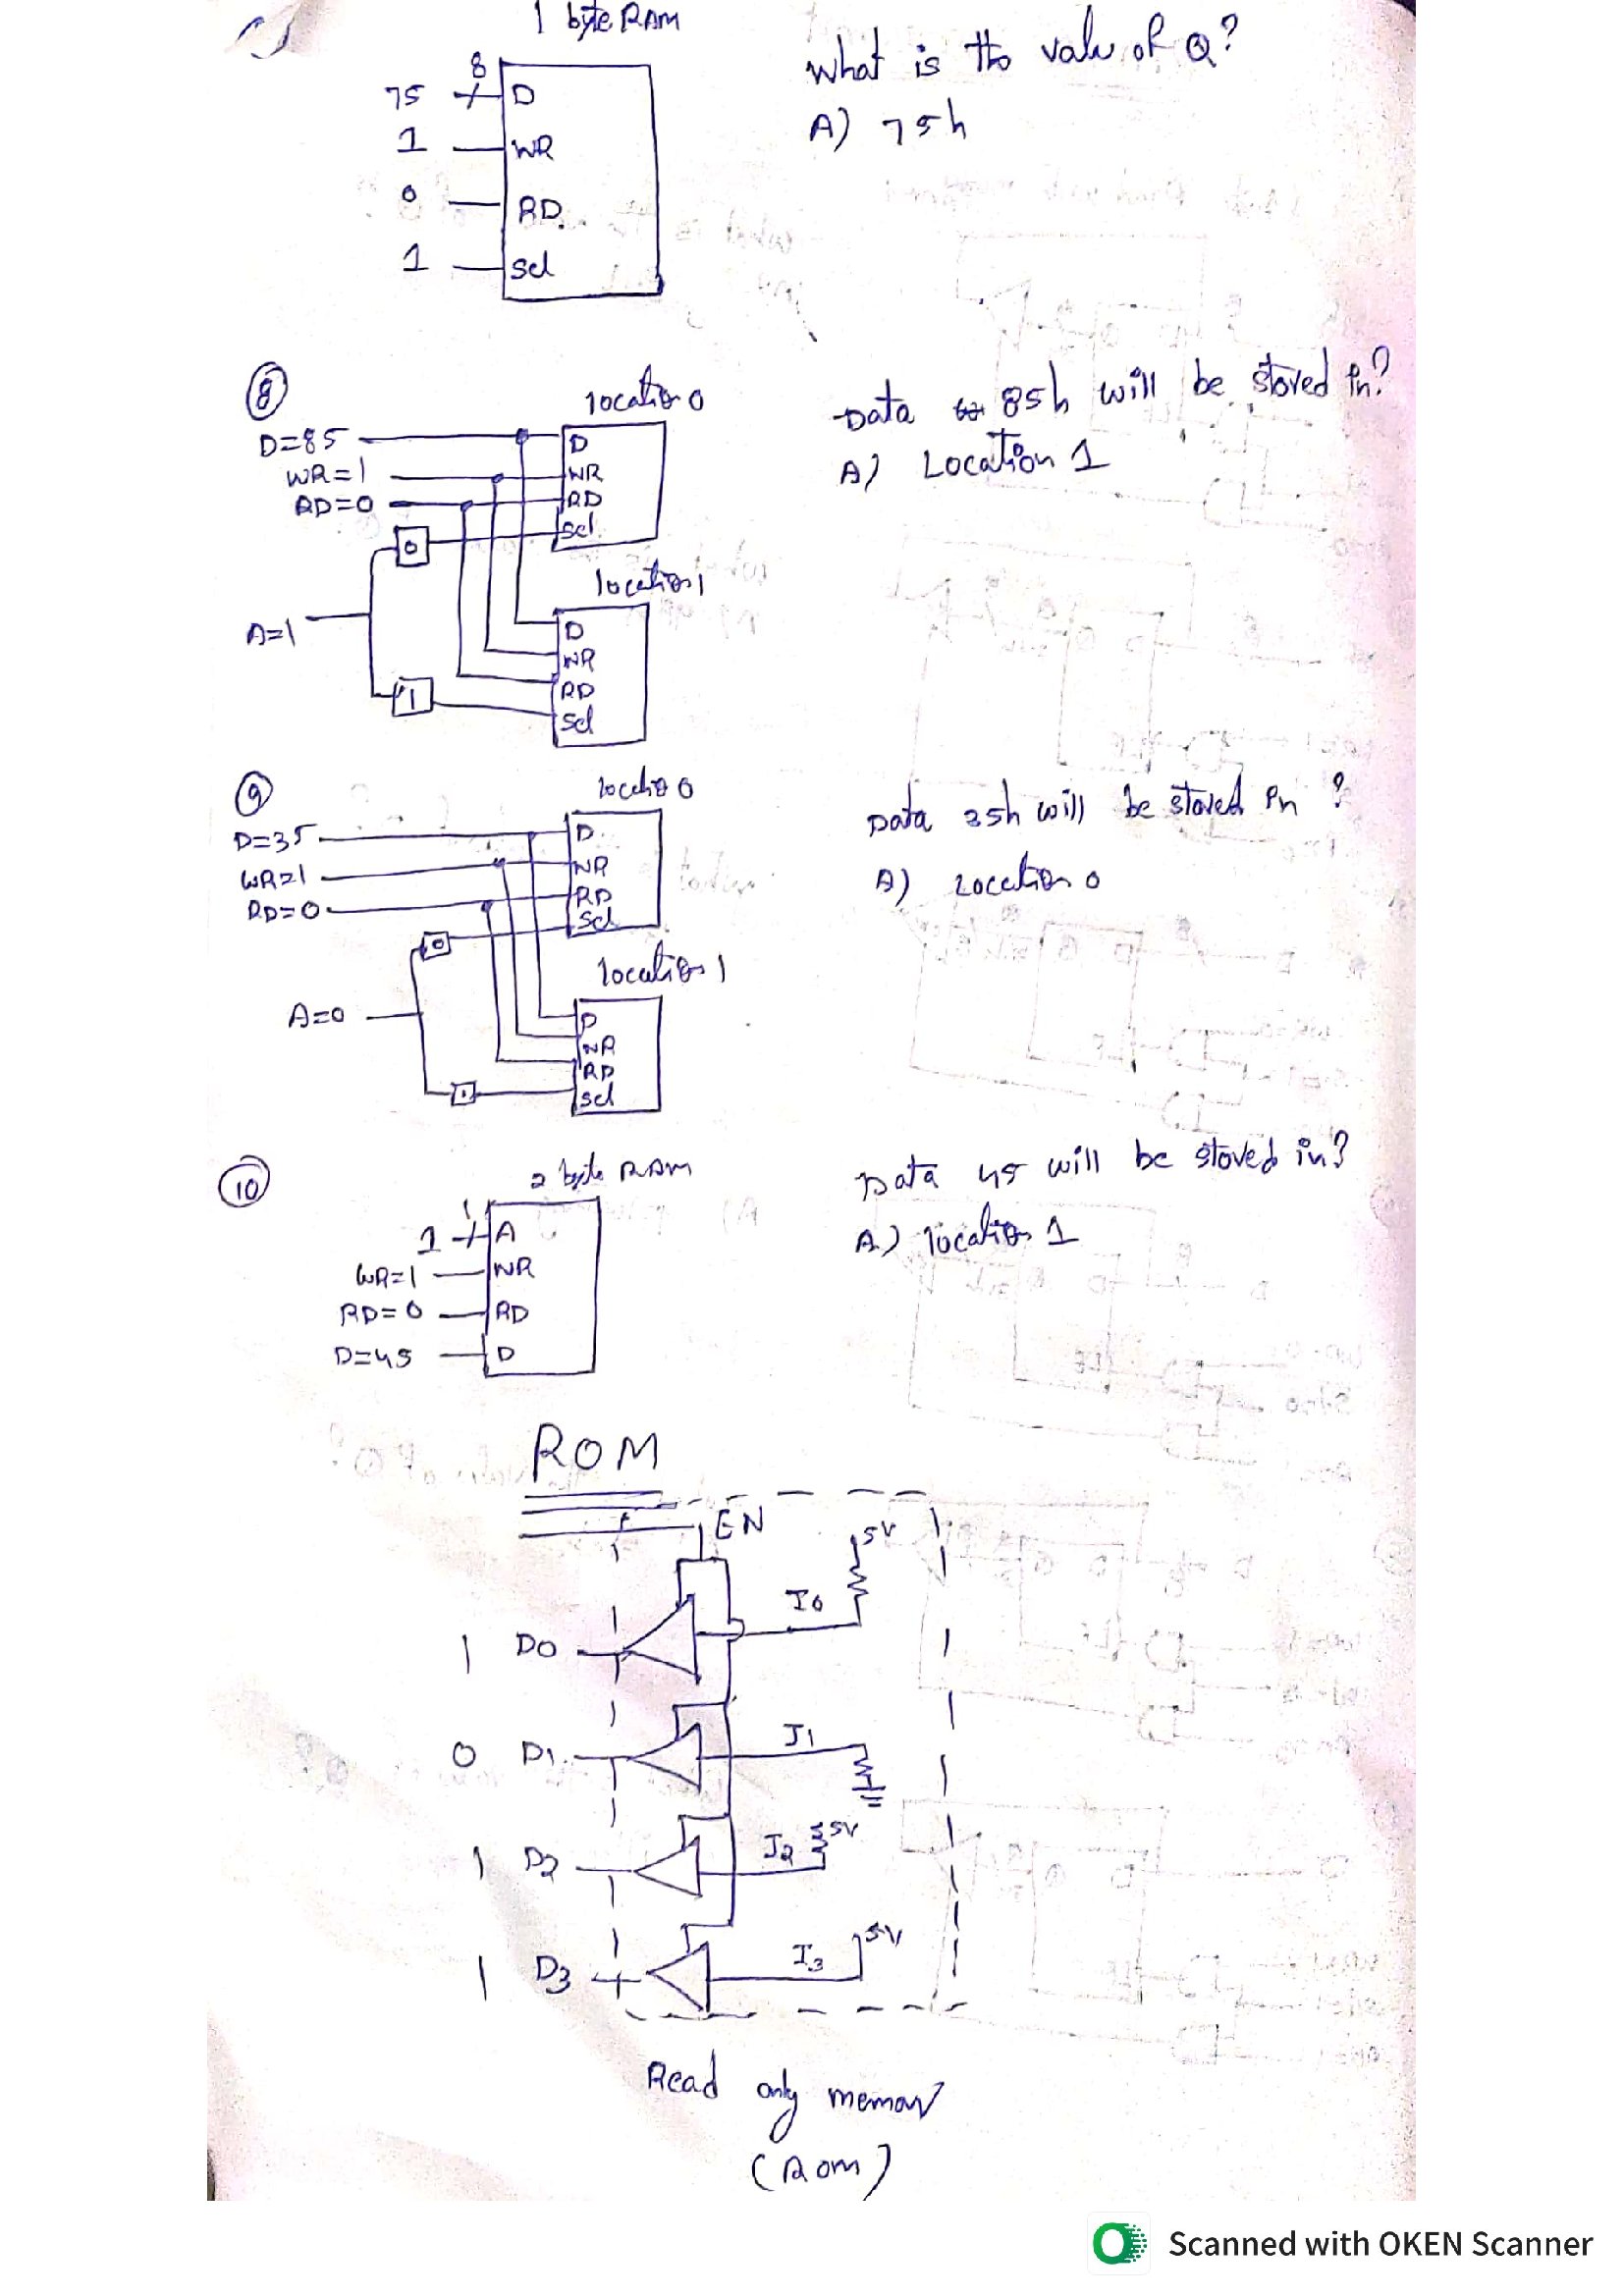 1 byte RAM
8
75 D
1 WR
0 RD
1 Sel
What is the value of Q?
A) 75h
8
location 0
D=85 D
WR=1 WR
RD=0 RD
0 Sel
location 1
A=1
D
WR
RD
1 Sel
Data 85h will be stored in?
A) Location 1
9
location 0
D=35 D
WR=1 WR
RD=0 RD
0 Sel
location 1
A=0
D
WR
RD
1 Sel
Data 35h will be stored in ?
A) Location 0
10
2 byte RAM
1
1 A
WR=1 WR
RD=0 RD
D=45 D
Data 45 will be stored in?
A) location 1
ROM
EN
5V
I0
1 D0
I1
0 D1
I2 5V
1 D2
I3 5V
1 D3
Read only memory
(Rom)
Scanned with OKEN Scanner